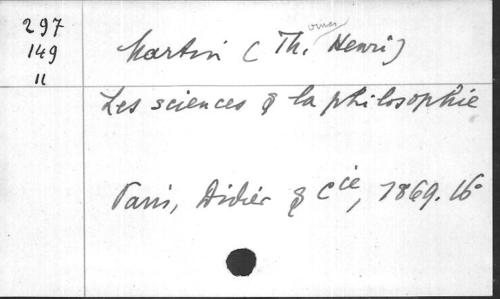 297
149
11
Martin (Th. omas Henri)
Les sciences & la philosophie
Paris, Didier & Cie, 1869. 16°